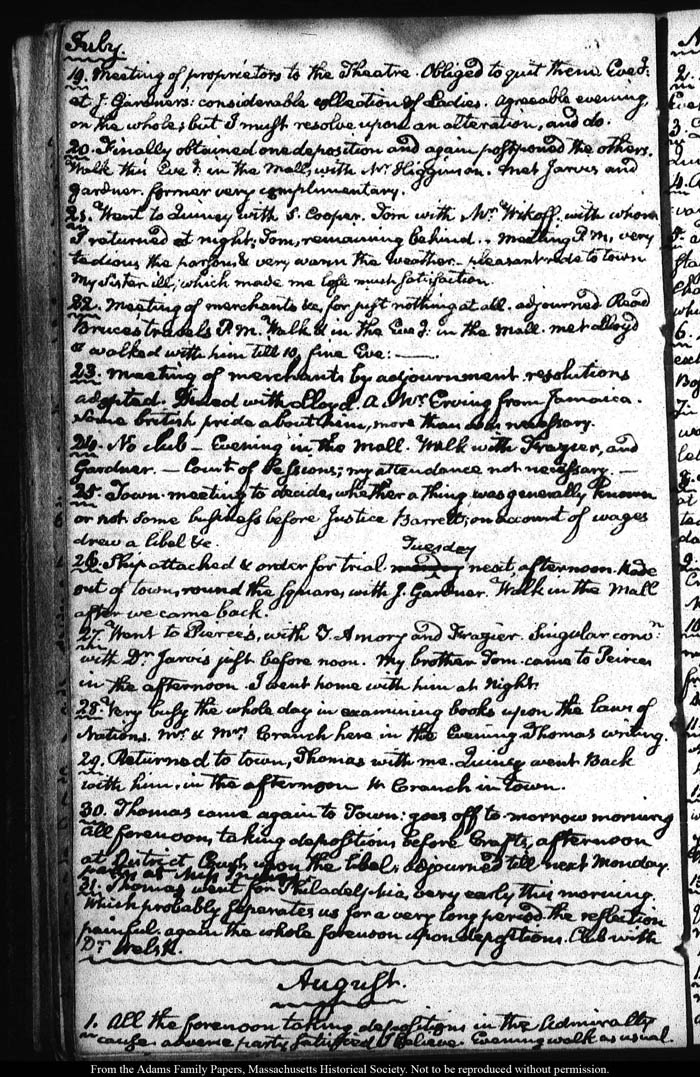 July.
19. Meeting of proprietors to the Theatre. Obliged to quit them. Eveg:
at J. Gardners: considerable collection of Ladies. Agreeable evening,
on the whole; but I must resolve upon an alteration, and do.
20. Finally obtained one deposition and again postponed the others.
Walk this Eveg. in the Mall, with Mr. Higginson. Met Jarvis and
Gardner. former very complimentary.
21. Went to Quincy with S. Cooper. Tom with Mr. Wikoff, with whom
I returned at night; Tom, remaining behind. Meeting P.M. very
tedious the parson, & very warm the weather. pleasant ride to town
My Sister ill; which made me lose much satisfaction.
22. Meeting of merchants &c, for just nothing at all. adjourned. Read
Bruces travels P.M. Walk'd in the Eveg: in the Mall. met Lloyd
& walked with him till 10, fine Eve:
23. Meeting of merchants by adjournment. resolutions
adopted. Dined with Lloyd. A. Mr. Erving from Jamaica.
Some british pride about him, more than was necessary.
24. No club — Evening in the Mall. Walk with Frazier, and
Gardner. — Court of Sessions; my attendance not necessary. —
25. Town-meeting to decide, whether a thing was generally known
or not. Some business before Justice Barrett; on account of wages
drew a libel &c.
26. Ship attached & order for trial Tuesday next, afternoon. Rode
out of town, round the square, with J. Gardner. Walk in the Mall
after we came back.
27. Went to Pierce's, with T. Amory and Frazier. Singular convn:
with Dr. Jarvis just before noon. My brother Tom came to Peirces
in the afternoon. I went home with him at night.
28. Very busy the whole day in examining books upon the laws of
Nations. Mr. & Mrs. Cranch here in the Evening. Thomas writing.
29. Returned to town, Thomas with me. Quincy went back
with him, in the afternoon W. Cranch in town.
30. Thomas came again to Town: goes off to-morrow morning
All forenoon, taking depositions before Crafts, afternoon
at District Court, upon the libel, adjourned till next Monday.
31. Thomas went for Philadelphia, very early this morning.
Which probably seperates us for a very long period. the reflection
painful. again the whole forenoon upon depositions. Club with
Dr. Welsh.
August.
1. All the forenoon taking depositions in the Admiralty
cause. adverse party satisfied I believe. Evening walk as usual.
From the Adams Family Papers, Massachusetts Historical Society. Not to be reproduced without permission.